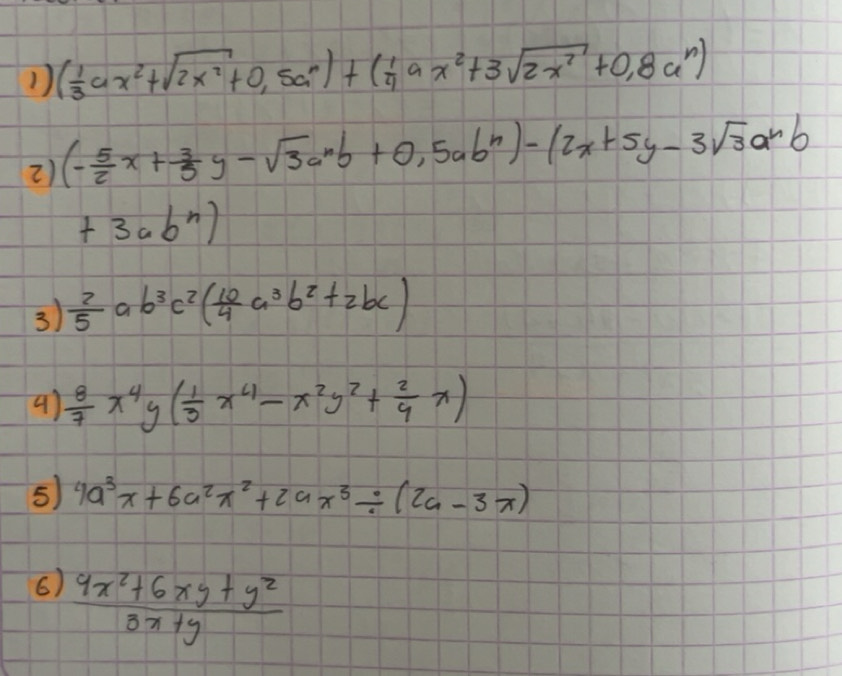 1) (1/3 ax² + √2x² + 0,5aⁿ) + (1/4 ax² + 3√2x² + 0,8aⁿ)
2) (-5/2 x + 3/5 y - √3aⁿb + 0,5abⁿ) - (2x + 5y - 3√3aⁿb
+ 3abⁿ)
3) 2/5 ab³c² (10/4 a³b² + 2bc)
4) 8/7 x⁴y (1/3 x⁴ - x²y² + 2/4 x)
5) 4a³x + 6a²x² + 2ax³ ÷ (2a - 3x)
6) 9x² + 6xy + y²
3x + y